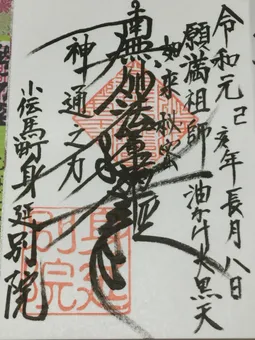 令和元己亥年長月八日
願満祖師 油かけ大黒天
如来秘密
南無妙法蓮華経
神通之力
小伝馬町身延別院
身延別院